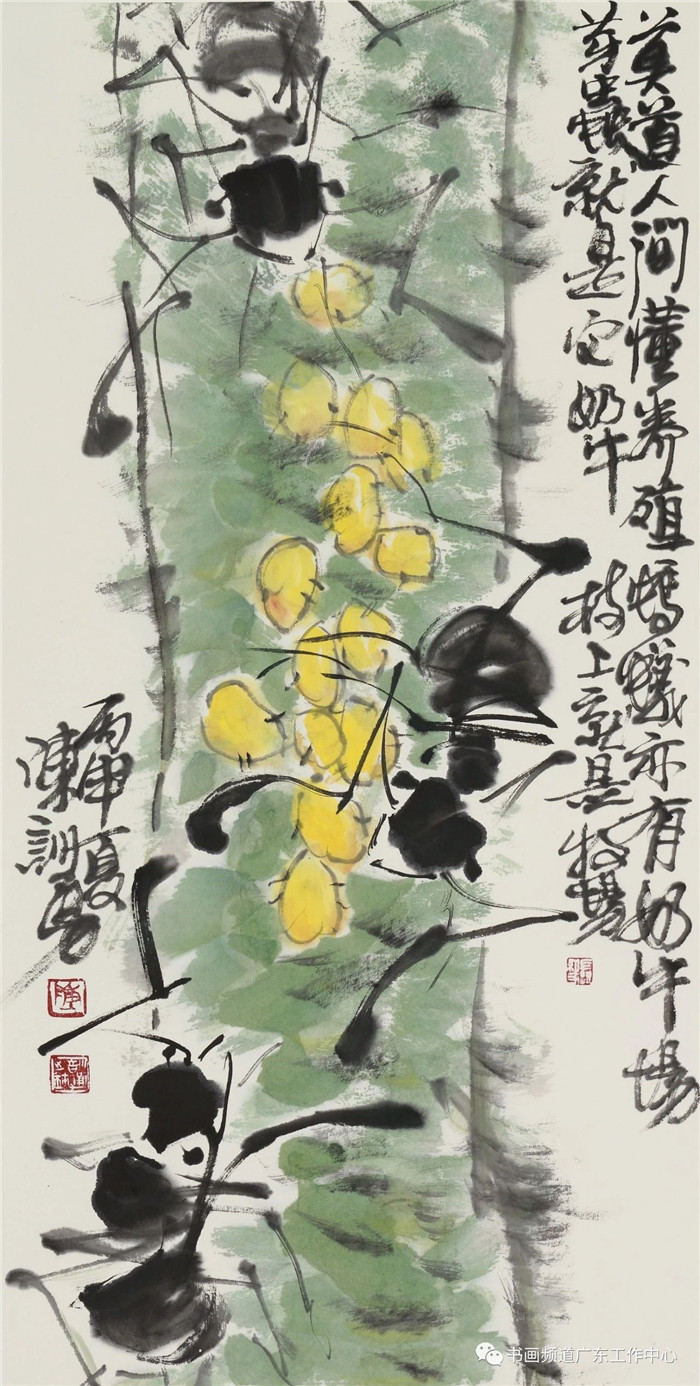 莫道人间懂养殖 蚂蚁亦有奶牛场
芽虫就是它奶牛 枝上就是牧场
丙申夏
陳訓勇
书画频道广东工作中心